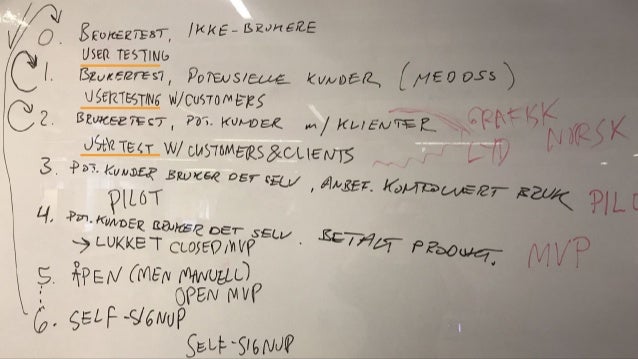 0. BRUKERTEST, IKKE-BRUKERE
USER TESTING
1. BRUKERTEST, POTENSIELLE KUNDER (MED OSS)
USERTESTING W/CUSTOMERS
2. BRUKERTEST, POT. KUNDER m/ KLIENTER
GRAFISK
NORSK
LYD
USER TEST W/ CUSTOMERS & CLIENTS
3. POT. KUNDER BRUKER DET SELV, ANBEF. KONTROLLERT BRUK PILO
PILOT
4. POT. KUNDER BRUKER DET SELV. BETALT PRODUKT. MVP
→ LUKKET CLOSED MVP
5. ÅPEN (MEN MANUELL)
OPEN MVP
6. SELF-SIGNUP
SELF-SIGNUP